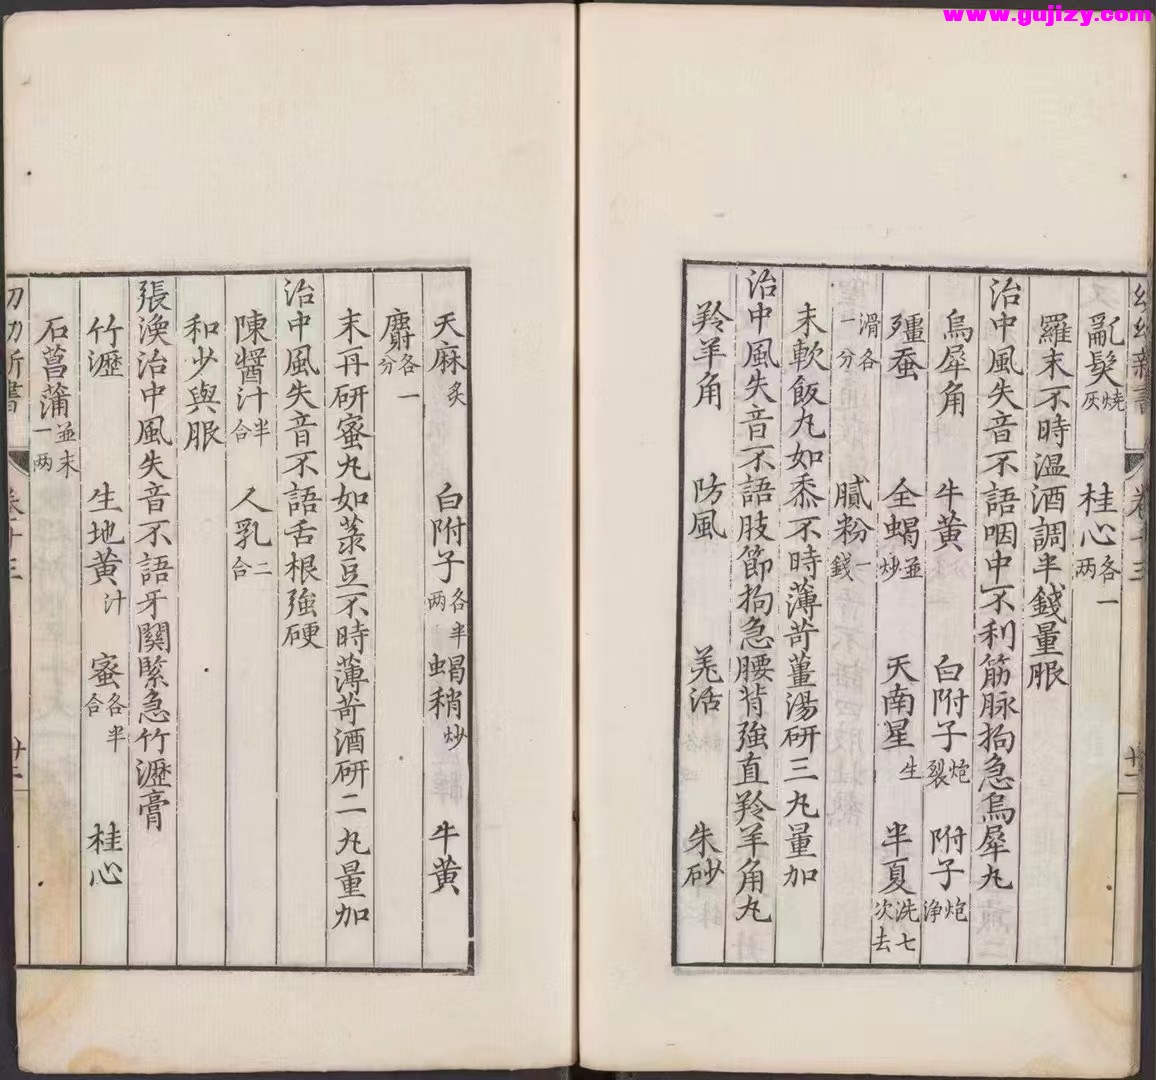 www.gujizy.com
幼幼新書 卷十三 廿一
亂髮燒灰 桂心各一两
羅末不時温酒調半錢量服
治中風失音不語咽中不利筋脉拘急烏犀丸
烏犀角 牛黄 白附子炮裂 附子炮浄
殭蚕 全蝎並炒 天南星生 半夏洗七次去
滑各一分 膩粉一錢
末軟飯丸如黍不時薄荷薑湯研三丸量加
治中風失音不語肢節拘急腰背強直羚羊角丸
羚羊角 防風 羌活 朱砂
天麻炙 白附子各半两 蝎稍炒 牛黄
麝各一分
末再研蜜丸如菉豆不時薄荷酒研二丸量加
治中風失音不語舌根強硬
陳醬汁半合 人乳二合
和少與服
張渙治中風失音不語牙關緊急竹瀝膏
竹瀝 生地黄汁 蜜各半合 桂心
石菖蒲並末一两
幼幼新書 卷十三 廿二